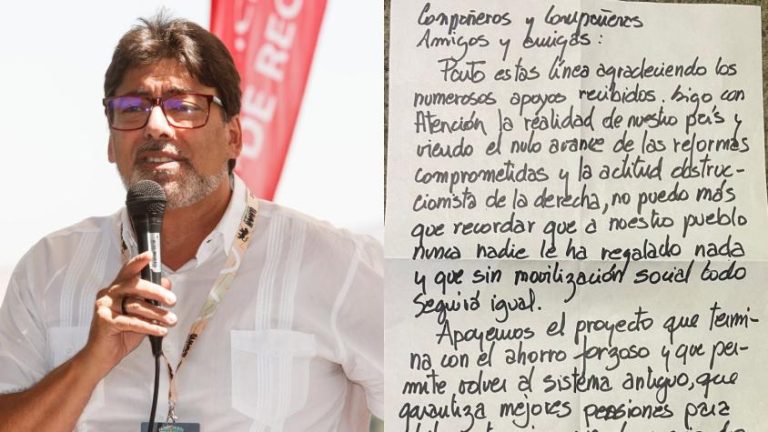 DE REC
Compañeros y Compañeras
Amigos y amigas:
Parto estas línea agradeciendo los
numerosos apoyos recibidos. Sigo con
Atención la realidad de nuestro país y
viendo el nulo avance de las reformas
comprometidas y la actitud obstruc-
cionista de la derecha, no puedo más
que recordar que a nuestro pueblo
nunca nadie le ha regalado nada
y que sin movilización social todo
seguirá igual.
Apoyemos el proyecto que termi-
na con el ahorro forzoso y que per-
mite volver al sistema antiguo, que
garantiza mejores pensiones para